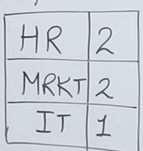 HR 2
MRKT 2
IT 1